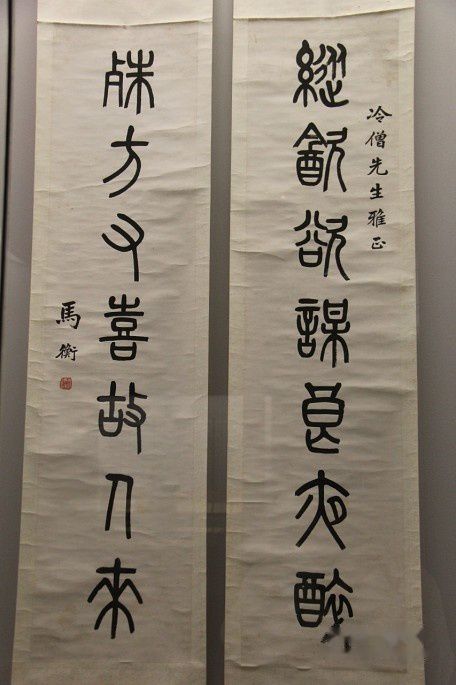 冷僧先生雅正
縱㱃欲謀良夜醉
殊方又喜故人來
馬衡